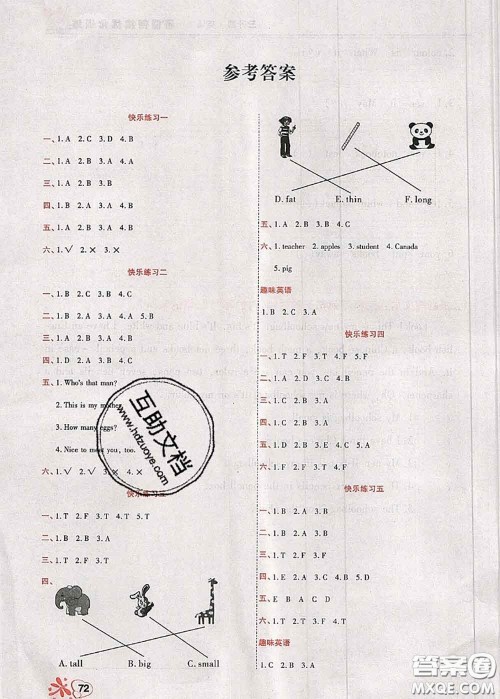 参考答案
快乐练习一
一、1.A 2.C 3.D 4.B
二、1.A 2.B 3.A 4.B
三、1.B 2.A 3.B
四、1.A 2.A 3.B 4.B
五、1.A 2.A 3.B
六、1.√ 2.× 3.×
快乐练习二
一、1.B 2.B 3.D 4.C
二、1.B 2.A 3.B
三、1.B 2.A 3.A
四、1.D 2.C 3.A 4.B
五、1. Who's that man?
2. This is my mother.
3. How many eggs?
4. Nice to meet you, too.
六、1.√ 2.√ 3.× 4.×
快乐练习三
一、1.T 2.F 3.T 4.T 5.T
二、1.A 2.B 3.A
三、1.T 2.F 3.F 4.T
四、
A. tall B. big C. small
72
D. fat E. thin F. long
五、1.A 2.B 3.A 4.B
六、1. teacher 2. apples 3. student 4. Canada
5. pig
趣味英语
1.B 2.C 3.A
快乐练习四
一、1.T 2.F 3.T 4.F 5.F
二、1.B 2.B 3.A
三、1.A 2.A 3.B
四、1.A 2.C 3.B
五、1.A 2.C 3.B 4.D
六、1.T 2.F 3.T 4.F
快乐练习五
一、1.B 2.A 3.A
二、1.T 2.F 3.T
三、1.B 2.A 3.A
四、1.B 2.C 3.A 4.D
五、E B A C D
六、1.F 2.F 3.T 4.F
趣味英语
1.C 2.B 3.A
互助文档
www.hdzuoye.com
答案圈
MXQE.COM